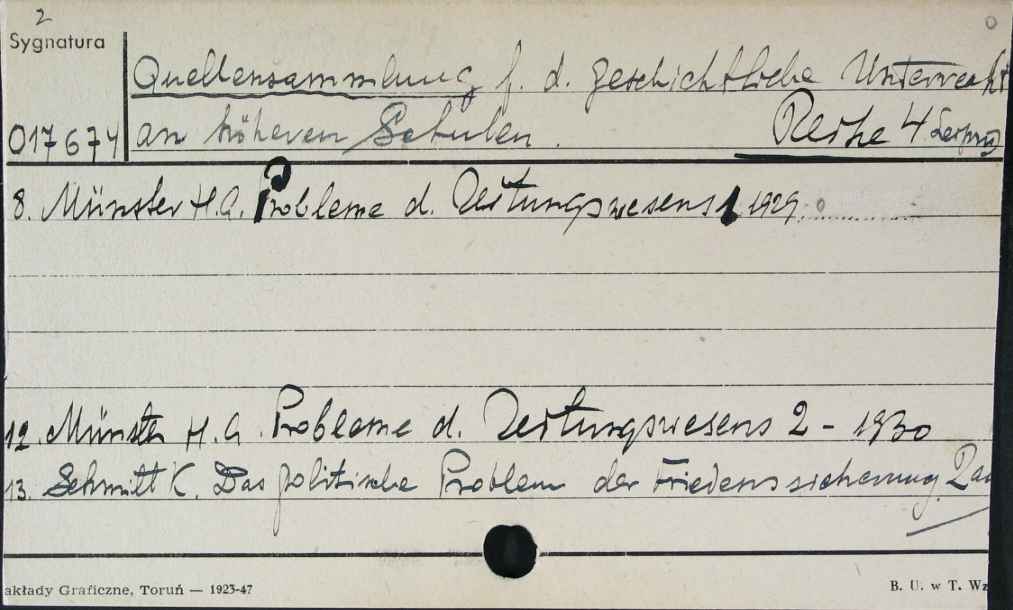 2
Sygnatura
Quellensammlung f. d. geschichtliche Unterrecht
017674 an höheren Schulen. Reihe 4 Leipzig
8. Münster H.A. Probleme d. Zeitungswesens 1 1929.
12. Münster H.A. Probleme d. Zeitungswesens 2 - 1930
13. Schmitt K. Das politische Problem der Friedenssicherung.
akłady Graficzne, Toruń — 1923-47
B. U. w T. Wz